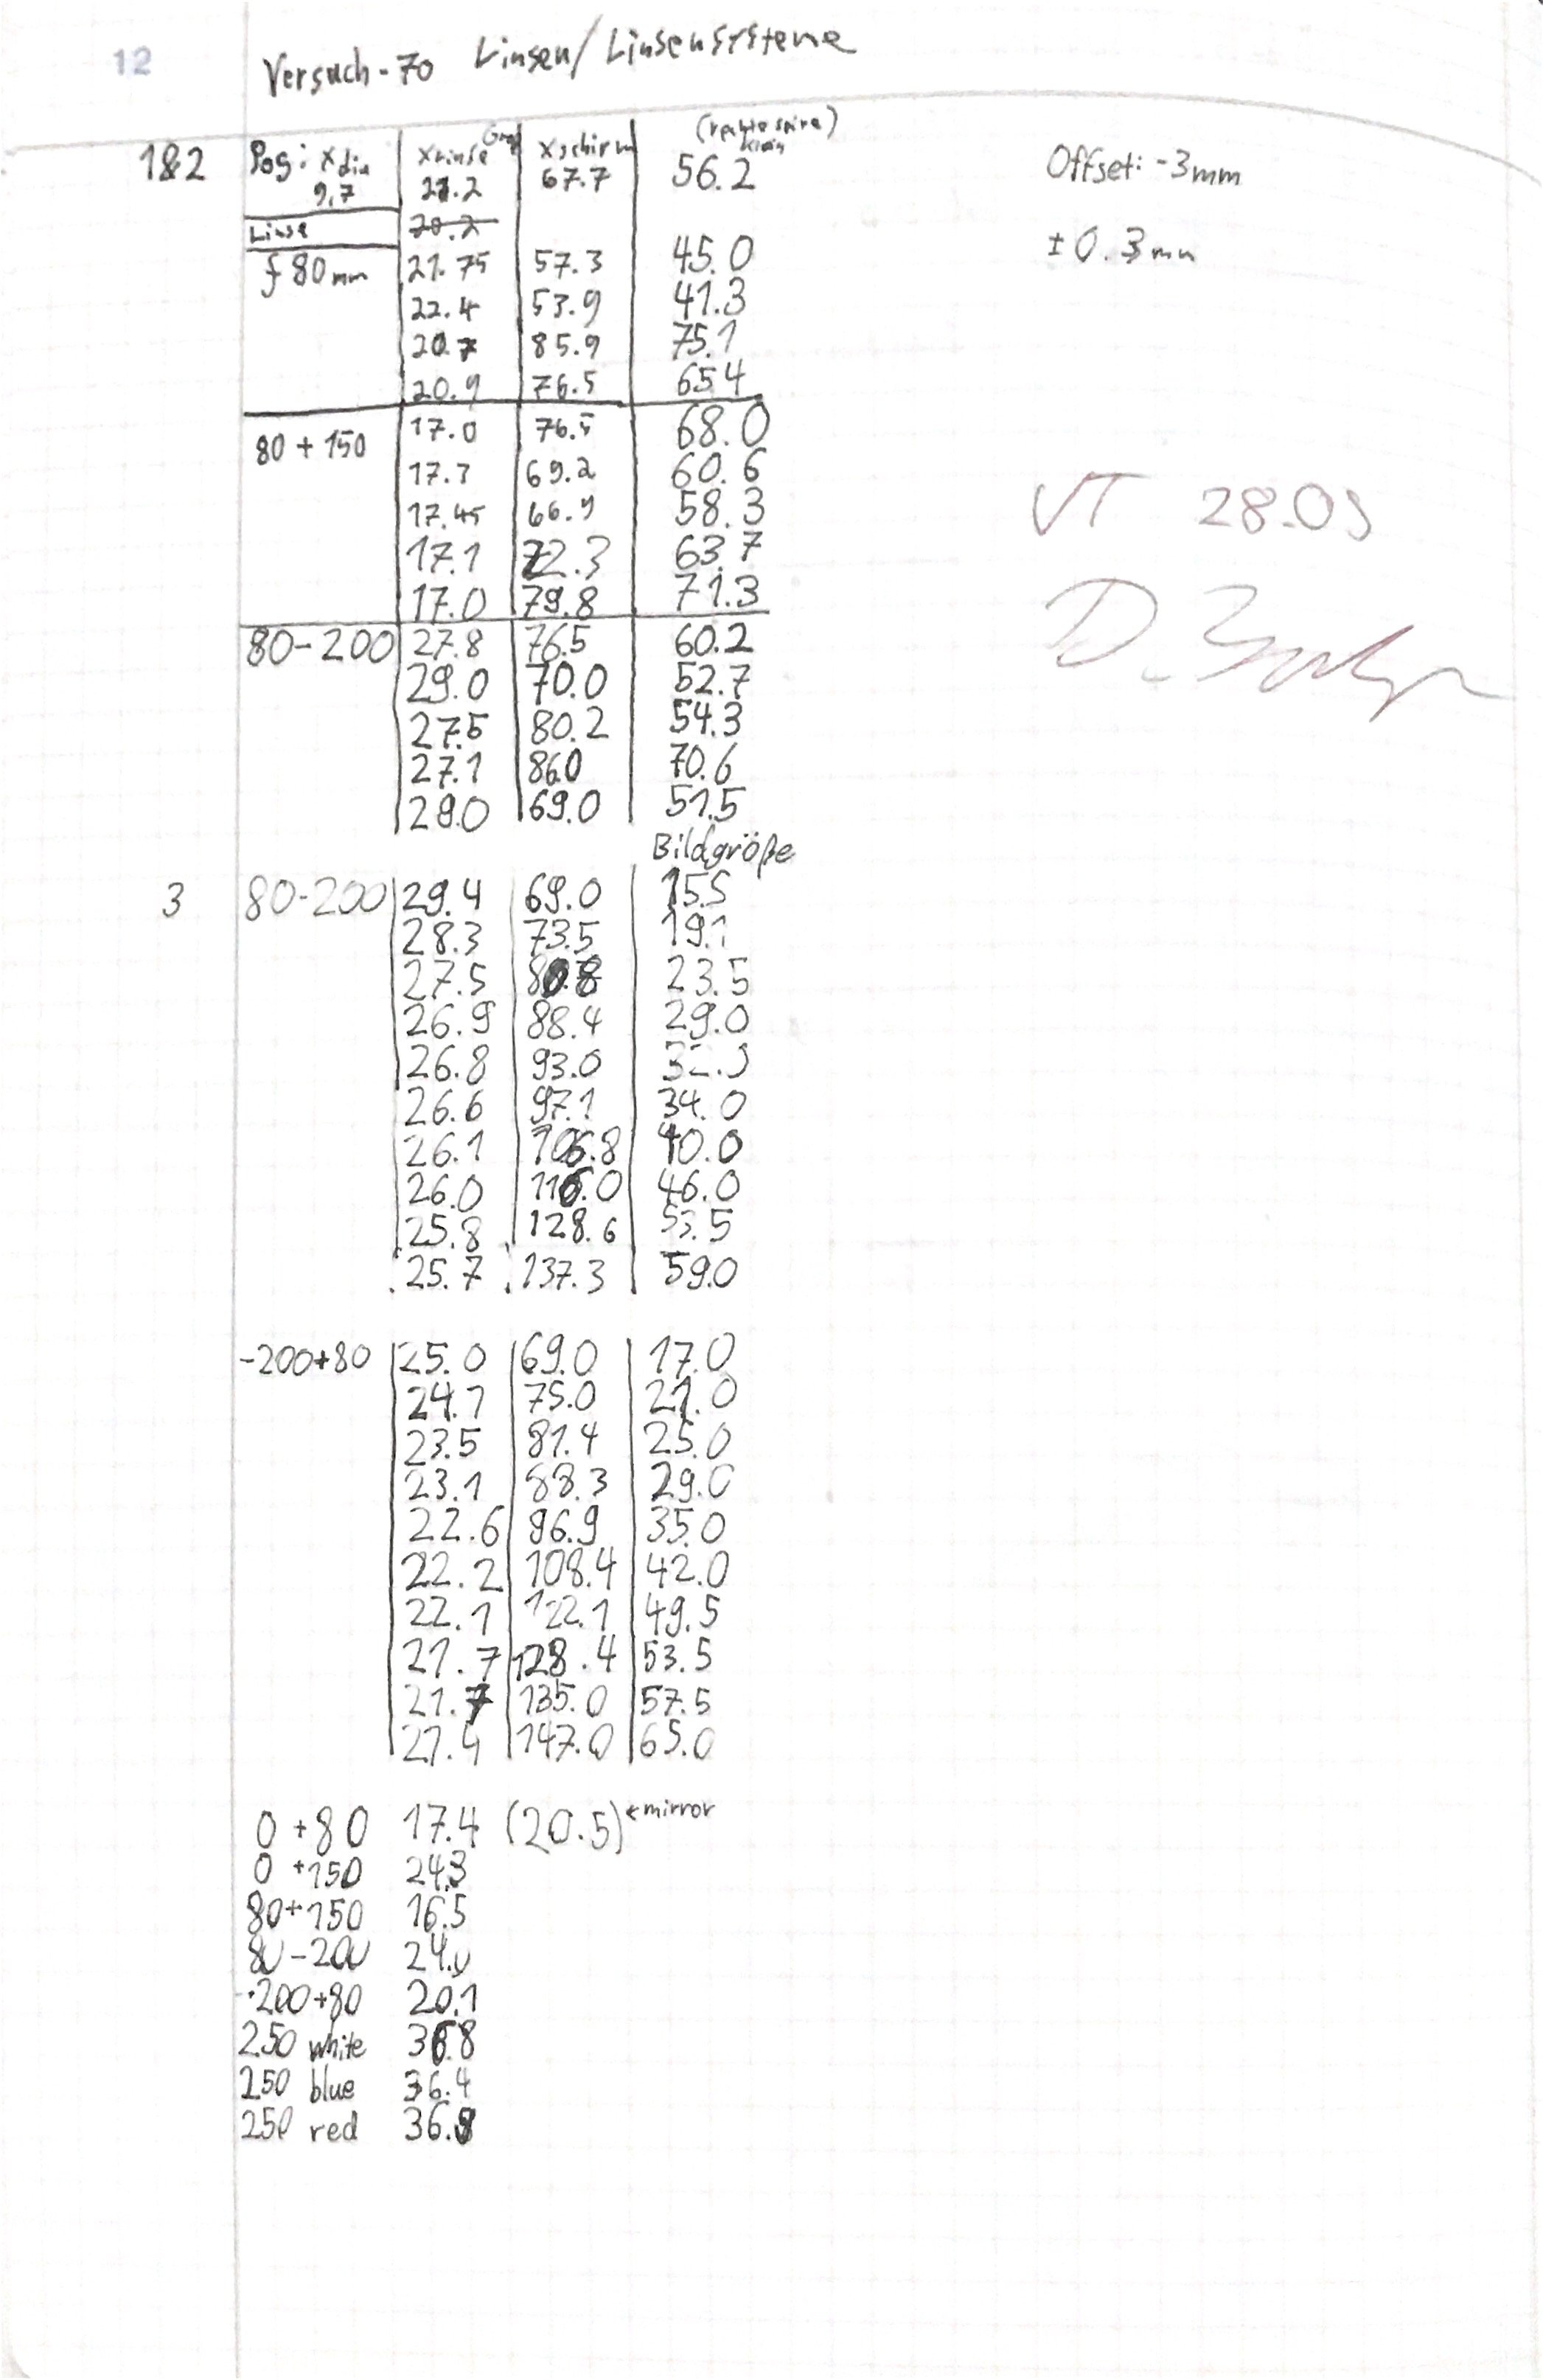 12
Versuch-70 Linsen/Linsensysteme
1&2 Pos: xdia xLinse Groß xSchirm (rechte seite) klein
9,7 21.2 67.7 56.2 Offset: -3mm
Linse 20.2
f 80mm 21.75 57.3 45.0 ± 0.3mm
22.4 53.9 41.3
20.7 85.9 75.1
20.9 76.5 65.4
80 + 150 17.0 76.5 68.0
17.3 69.2 60.6
17.45 66.9 58.3 VT 28.09
17.1 72.3 63.7
17.0 79.8 71.3
80-200 27.8 76.5 60.2
29.0 70.0 52.7
27.5 80.2 54.3
27.1 86.0 70.6
29.0 69.0 51.5
Bildgröße
3 80-200 29.4 69.0 15.5
28.3 73.5 19.1
27.5 80.8 23.5
26.9 88.4 29.0
26.8 93.0
26.6 97.1 34.0
26.1 106.8 40.0
26.0 116.0 46.0
25.8 128.6 53.5
25.7 137.3 59.0
-200+80 25.0 69.0 17.0
24.1 75.0 21.0
23.5 81.4 25.0
23.1 88.3 29.0
22.6 96.9 35.0
22.2 108.4 42.0
22.1 122.1 49.5
21.7 128.4 53.5
21.7 135.0 57.5
21.4 147.0 65.0
0 +80 17.4 (20.5) ←mirror
0 +150 24.3
80+150 16.5
80-200 24.0
-200+80 20.1
250 white 36.8
250 blue 36.4
250 red 36.9